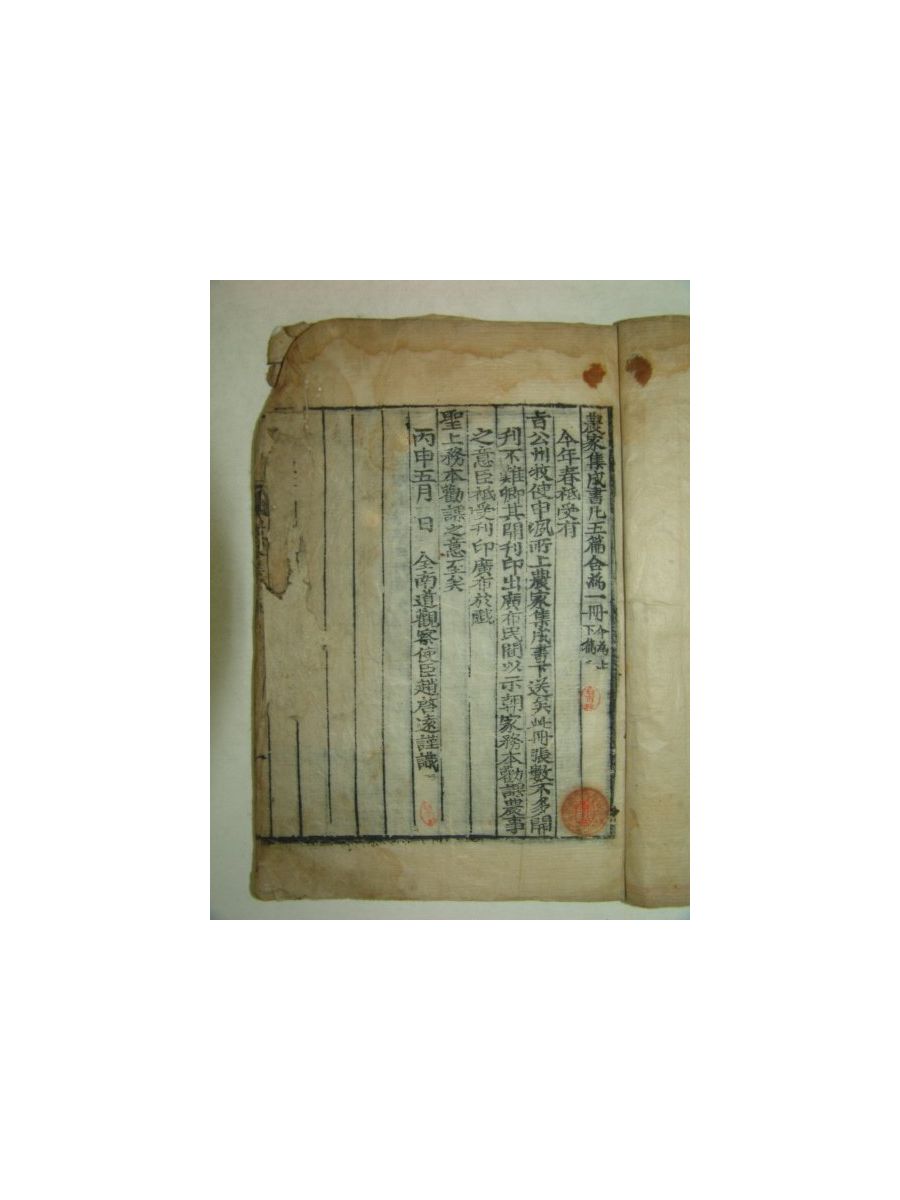 農家集成書凡五篇合為一冊 今為上下篇
今年春祗受有
旨公州牧使申洬所上農家集成書下送矣此冊張數不多開
刊不難卿其開刊印出廣布民間以示朝家務本勸課農事
之意臣祗受刊印廣布於
聖上務本勸課之意至矣
丙申五月 日 全南道觀察使臣趙啓遠謹識